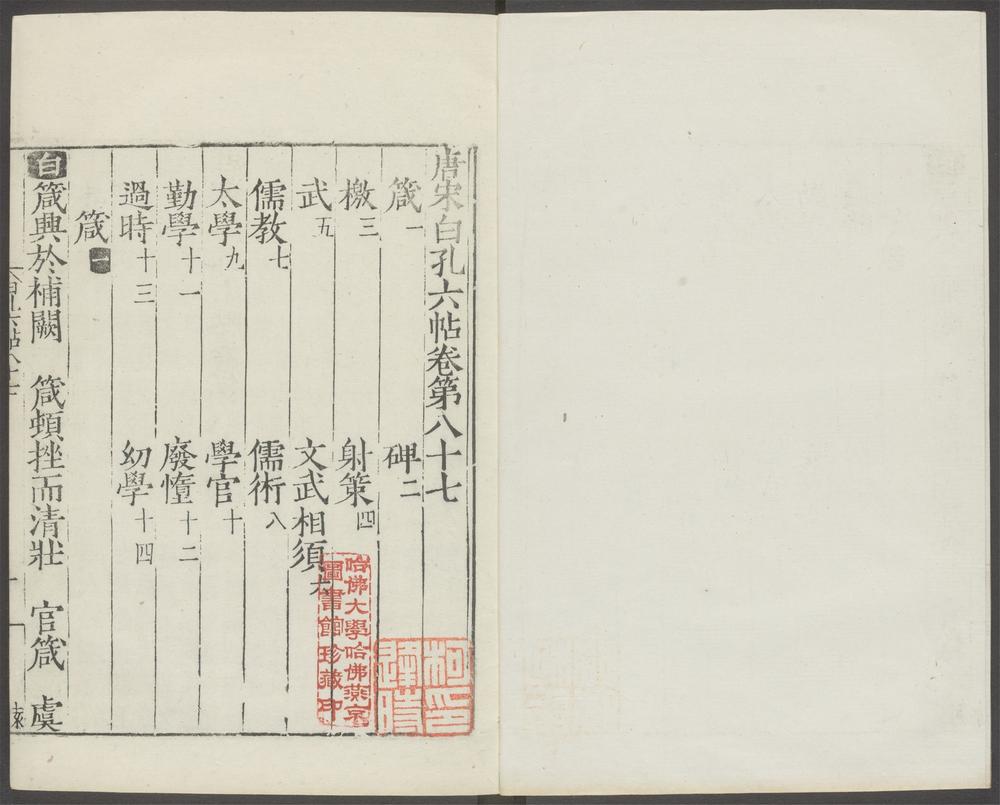 唐宋白孔六帖卷第八十七
箴一 碑二
檄三 射策四
武五 文武相須六
儒教七 儒術八
太學九 學官十
勤學十一 廢惰十二
過時十三 幼學十四
箴一
白 箴興於補闕 箴頓挫而清壯 官箴 虞
哈佛大學哈佛燕京
圖書館珍藏印